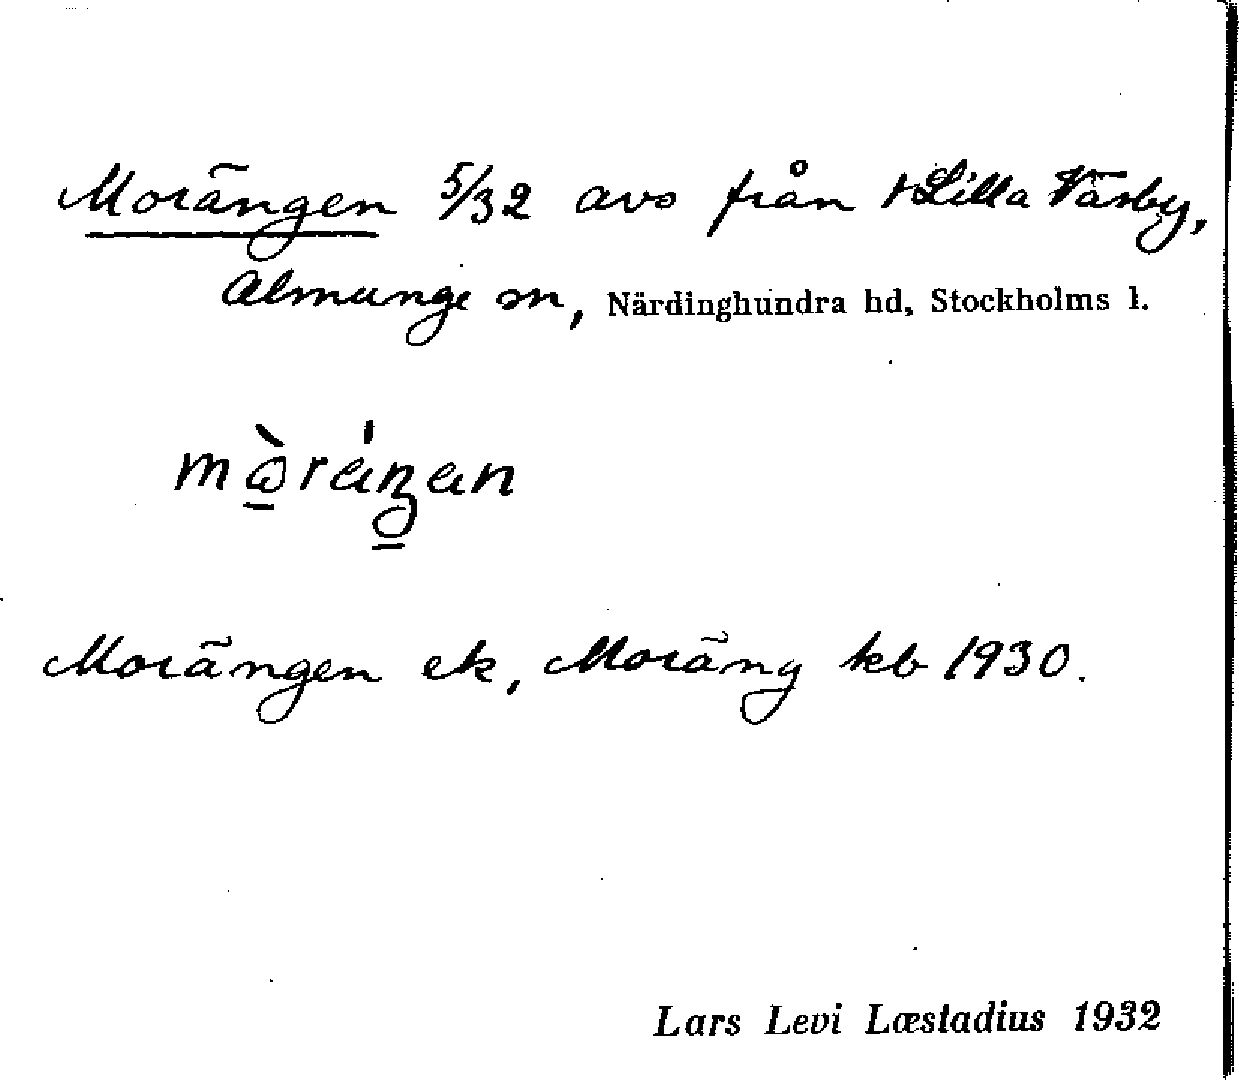 Morängen 5/32 avs från +Lilla Väsby,
Almunge sn, Närdinghundra hd, Stockholms l.
Morängen ek, Moräng kb 1930.
Lars Levi Læstadius 1932